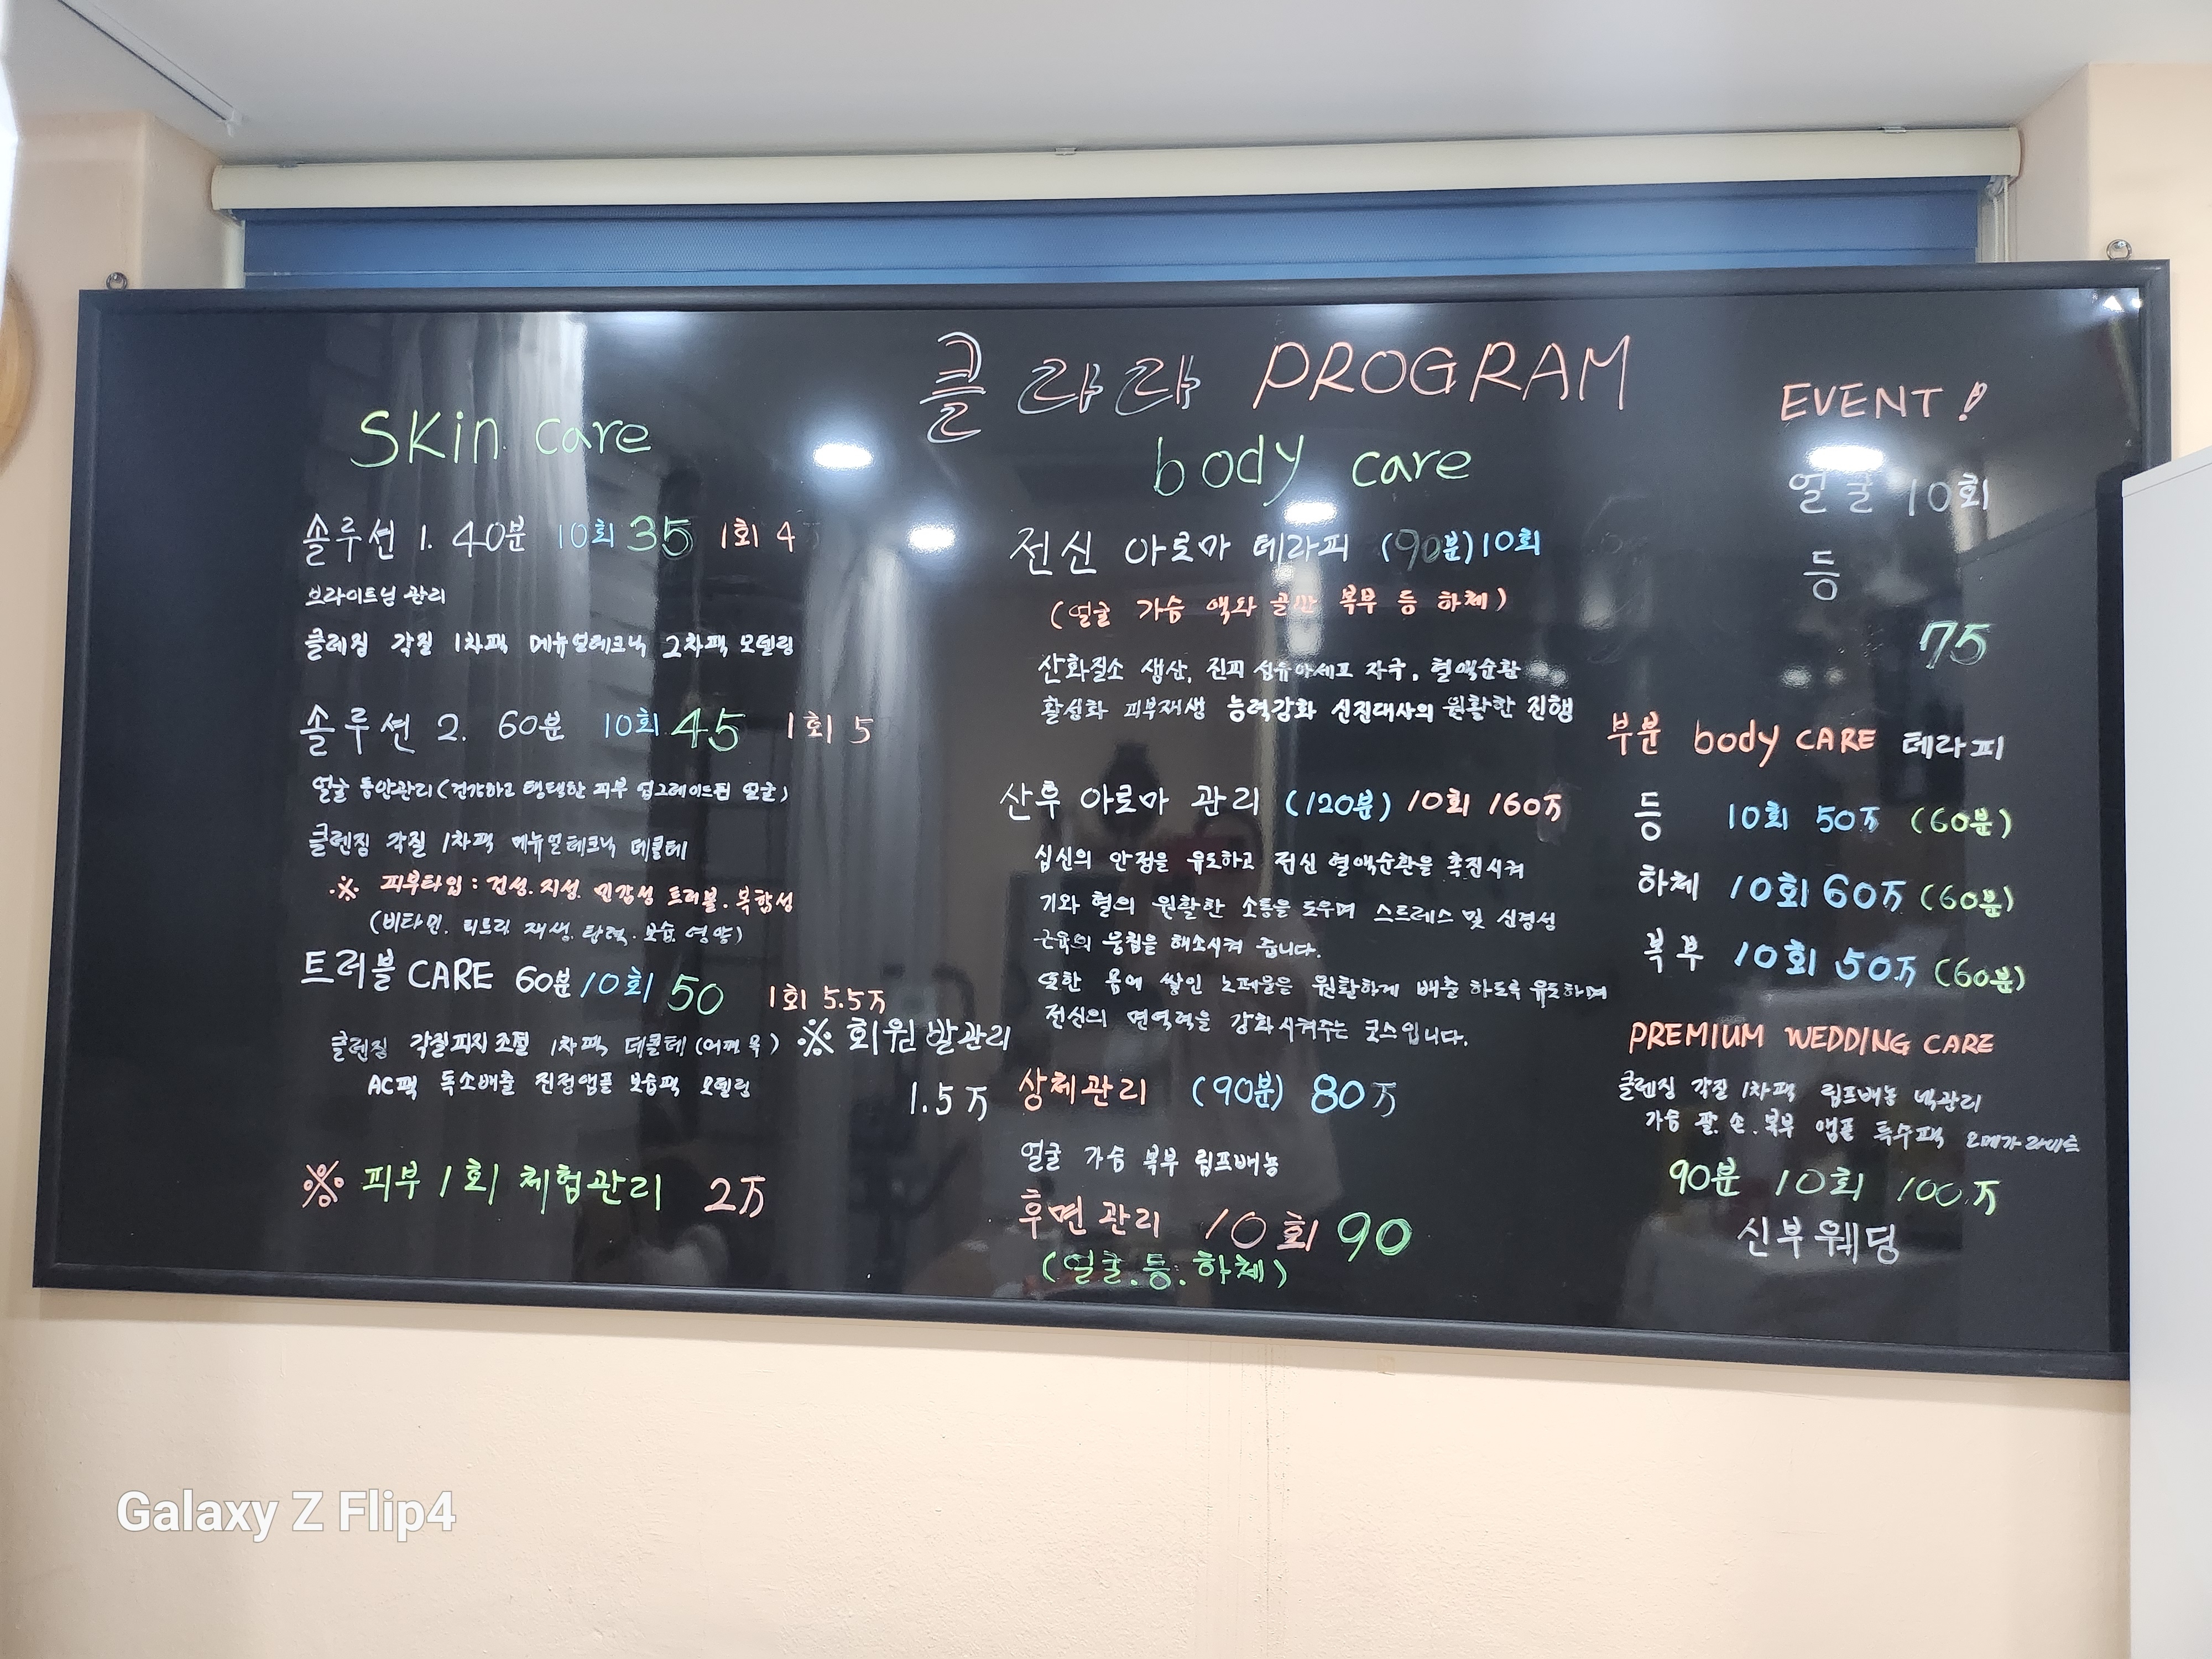 클라라 PROGRAM
Skin care
솔루션 1. 40분 10회 35 1회 4
브라이트닝 관리
클렌징 각질 1차팩 메뉴얼테크닉 2차팩 모델링
솔루션 2. 60분 10회 45 1회 5
얼굴 동안관리(건강하고 탱탱한 피부 업그레이드된 얼굴)
클렌징 각질 1차팩 메뉴얼테크닉 데콜테
※ 피부타입 : 건성. 지성. 민감성 트러블. 복합성
(비타민. 티트리 재생. 탄력. 보습. 영양)
트러블 CARE 60분 10회 50 1회 5.5万
클렌징 각질피지조절 1차팩 데콜테 (어깨 목)
AC팩 독소배출 진정앰플 보습팩 모델링
※ 회원 발관리
1.5万
※ 피부 1회 체험관리 2万
body care
전신 아로마 테라피 (90분) 10회
(얼굴 가슴 액와 골반 복부 등 하체)
산화질소 생산, 진피 섬유아세포 자극, 혈액순환
활성화 피부재생 능력강화 신진대사의 원활한 진행
산후 아로마 관리 (120분) 10회 160万
십신의 안정을 유도하고 전신 혈액순환을 촉진시켜
기와 혈의 원활한 소통을 도우며 스트레스 및 신경성
근육의 뭉침을 해소시켜 줍니다.
또한 몸에 쌓인 노폐물을 원활하게 배출 하도록 유도하며
전신의 면역력을 강화시켜주는 코스입니다.
상체관리 (90분) 80万
얼굴 가슴 복부 림프배농
후면관리 10회 90
(얼굴.등.하체)
EVENT!
얼굴 10회
등
75
부분 body CARE 테라피
등 10회 50万 (60분)
하체 10회 60万 (60분)
복부 10회 50万 (60분)
PREMIUM WEDDING CARE
클렌징 각질 1차팩 림프배농 넥관리
가슴 팔. 손. 복부 앰플 특수팩 오메가라이트
90분 10회 100万
신부웨딩
Galaxy Z Flip4